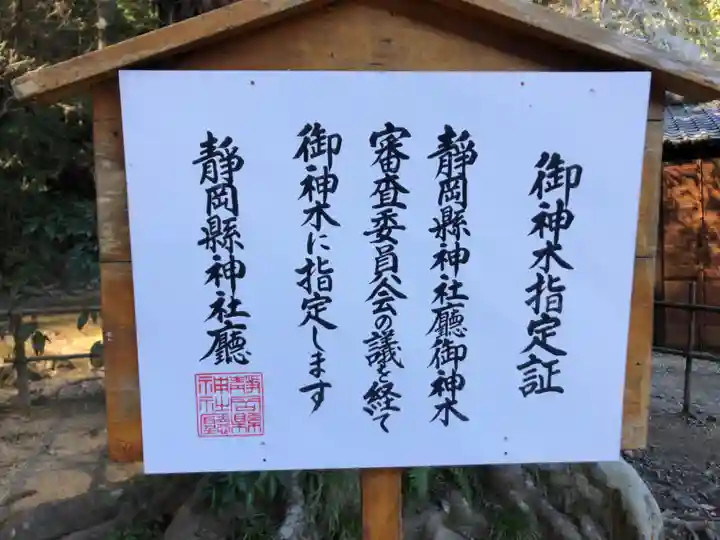 御神木指定証
静岡縣神社廳御神木
審査委員会の議を経て
御神木に指定します
静岡縣神社廳
静岡縣
神社廳